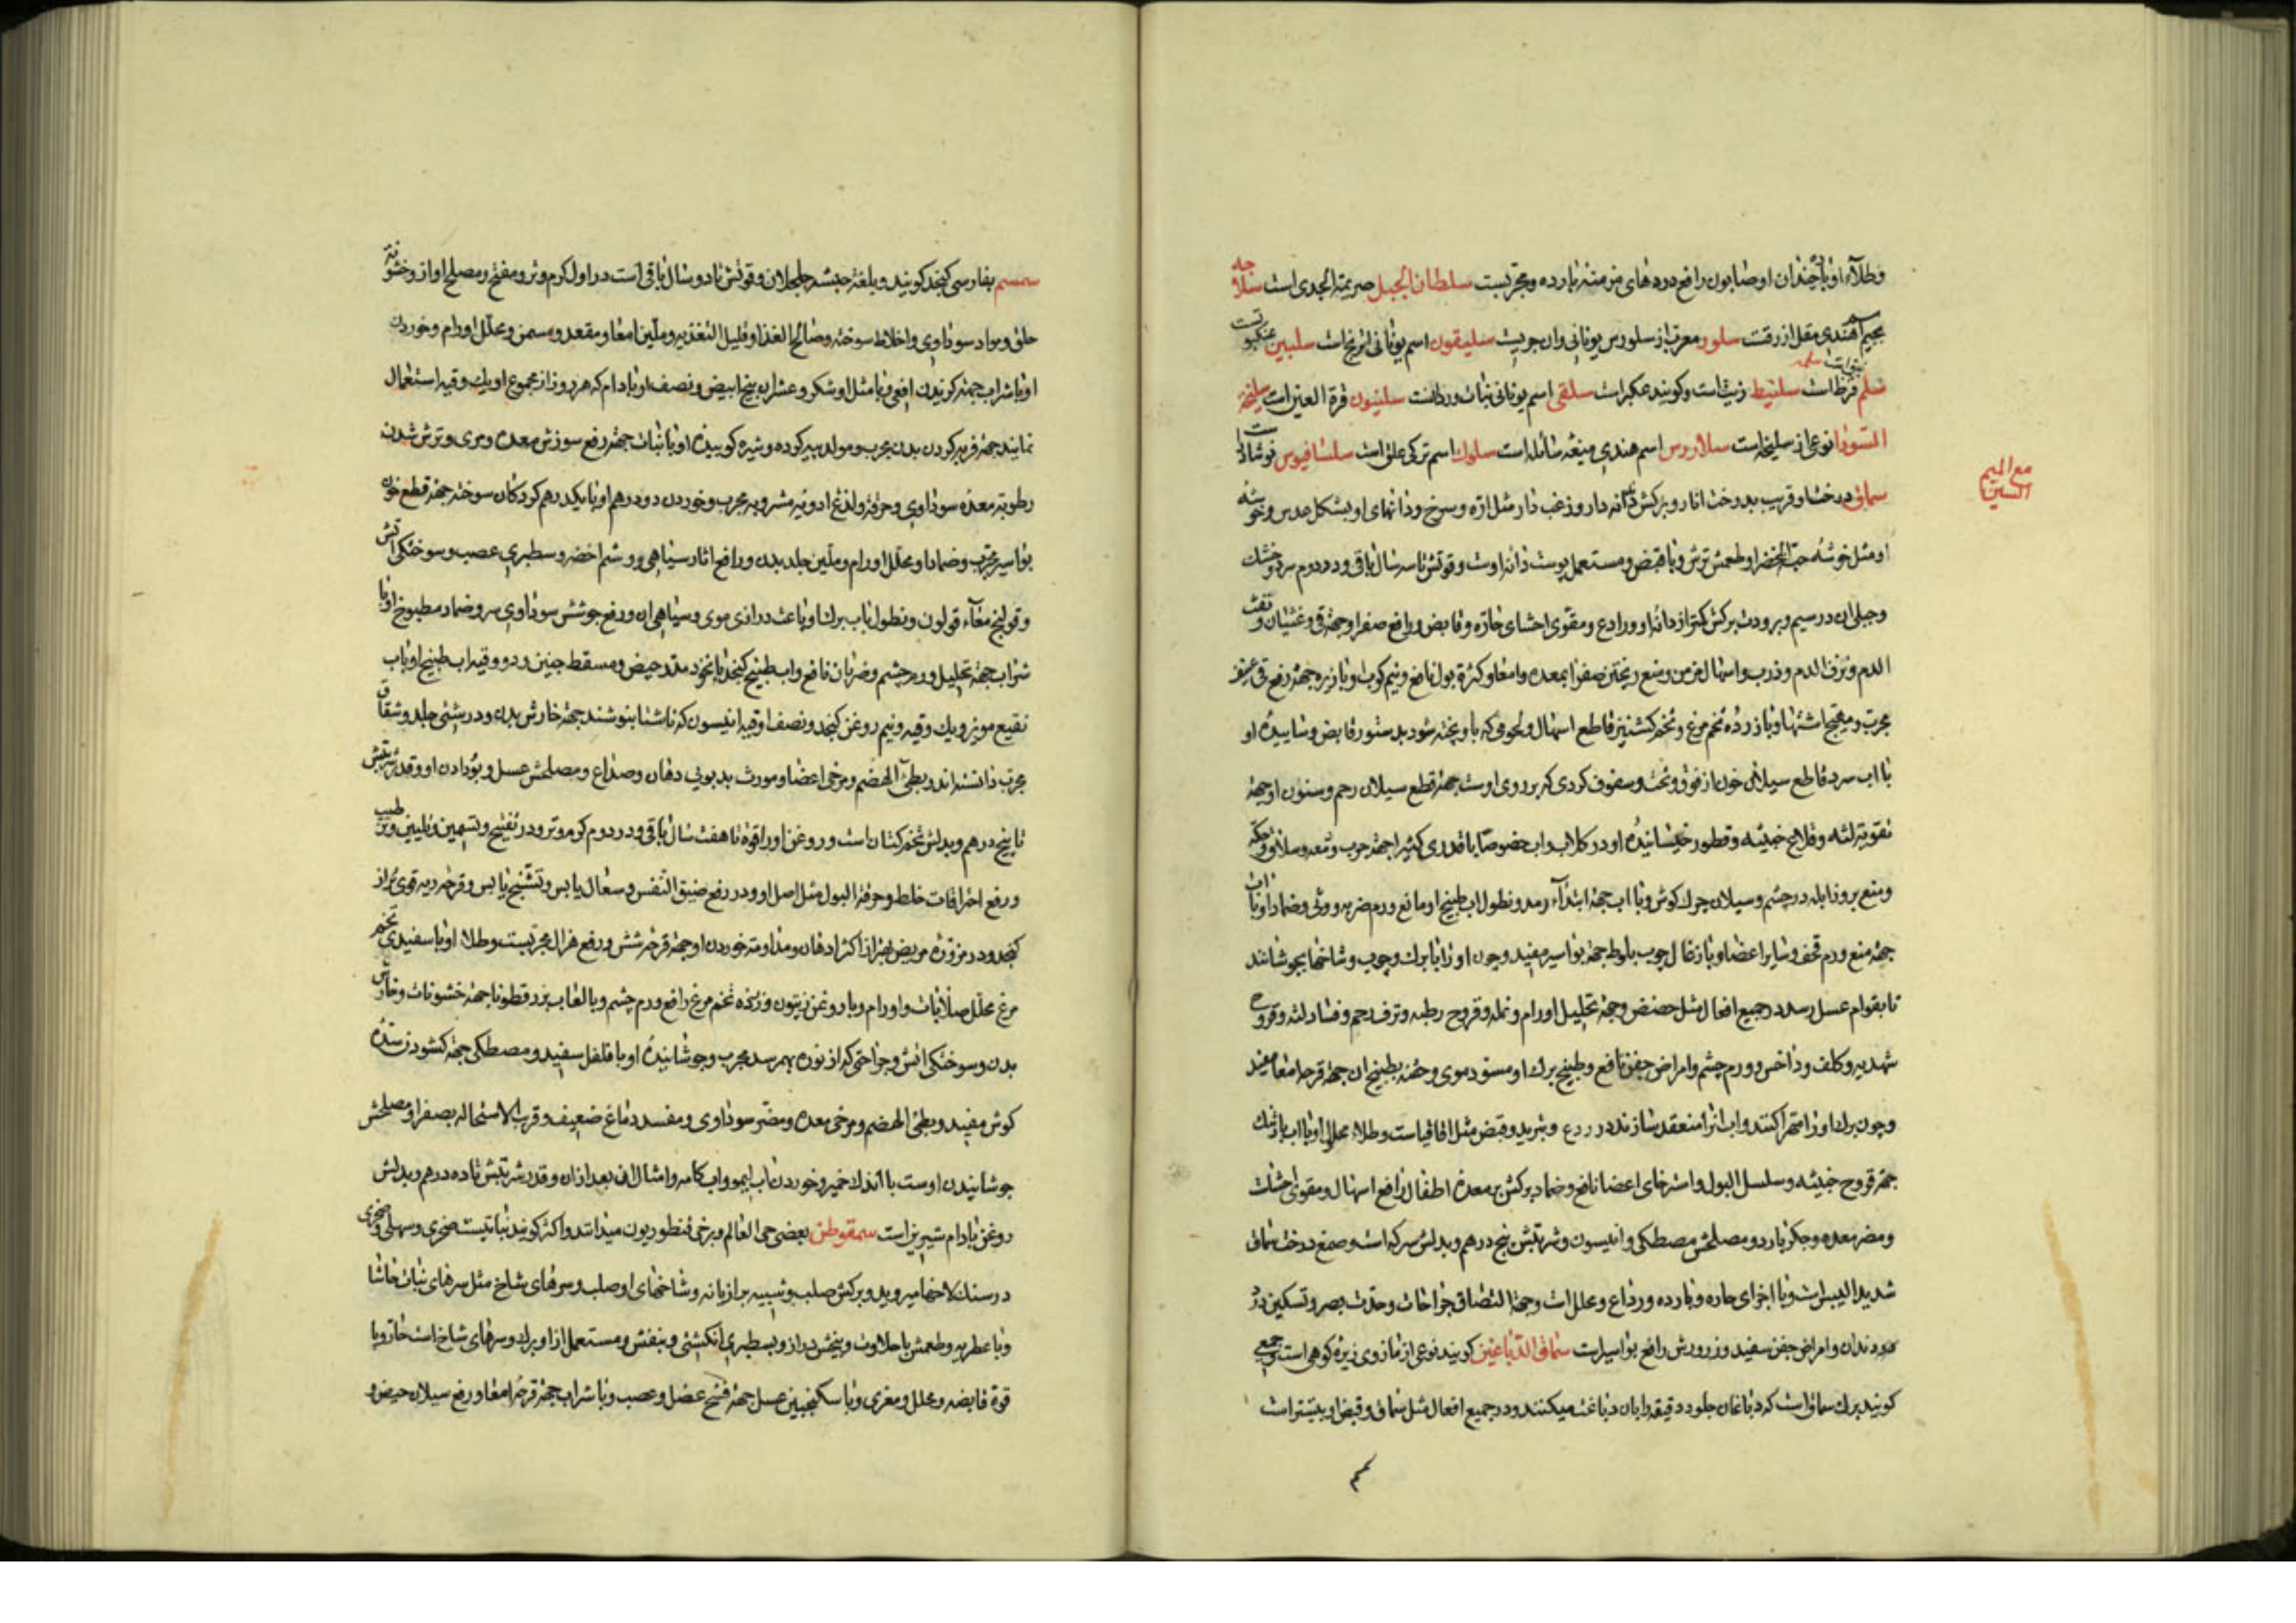 وطلاء او با چندان او صابون رافع دردهای مزمنه بارده و مجربست سلطان الجبل صریمة الجدی است سلاجه
بجیم اسم هندی مقل ازرقست سلور معرب از سلورس یونانی و ان جریست سلیقون اسم یونانی اترنجاست سلبین عنکبوتست
سلم قرظ است سلنیط زیتست و کویند عکر است سلقی اسم یونانی نبات وردانست سلینون قرة العین است سلیخة
السودا نوعی از سلیخه است سلاررس اسم هندی میعهٔ سائله است سلوك اسم ترکی علق است سلسافیوس نوشادر است
مع المیم السین
سماق درختی او قریب بدرخت انار و برکش دندانه دار و زغب دار مثل اره و سرخ و دانهای او بشکل عدس و خوشه
او مثل خوشهٔ حبة الخضرا و طعمش ترش و با قبض و مستعمل پوست دانه اوست و قوتش تا سه سال باقی و در دوم سرد و خشك
و جبلی ان در سیم و برودت برکش کمتر از دانه او و رادع و مقوی احشای حاره و قابض و رافع صفرا و جهة قی و غثیان و نفث
الدم و نزف الدم و ذرب و اسهال مزمن و منع ریختن صفرا بمعده و امعا و کثرة بول نافع و نیم کوب او با زیره جهة رفع قی عنیف
مجرب و مهیج اشتها و با زردهٔ تخم مرغ و تخم کشنیز قاطع اسهال و لحومی که با او پخته شود بدستور قابض و ساییدهٔ او
با اب سرد قاطع سیلان خون از فوق و تحت و سفوف کردی که بر روی اوست جهة قطع سیلان رحم و سنون او جهة
تقویة لثه و قلاع خبیثه و قطور خیسانیدهٔ او در کلاب و اب خصوصا با قدری کثیرا جهة جرب و دمعه و سلاق و حکه
و منع بروز ابله در چشم و سیلان چرك کوش و با اب جهة ابتداء رمد و نطول اب طبیخ او مانع ورم ضربه و وثی و ضماد او با اب
جهة منع ورم قحف و سایر اعضا و با زغال چوب بلوط جهة بواسیر مفید و چون او را با برك و چوب و شاخها بجوشانند
تا بقوام عسل رسد در جمیع افعال مثل حضض و جهة تحلیل اورام و نمله و قروح رطبه و نزف رحم و فساد لثه و قروح
شهدیه و کلف و داخس و ورم چشم و امراض جفن نافع و طبیخ برك او مسود موی و حقنه بطبیخ ان جهة قرحه امعا مفید
و چون برك او را مهرا کنند و اب انرا منعقد سازند در ردع و تبرید و قبض مثل اقاقیاست و طلاء محلل او با اب بارتنك
جهة قروح خبیثه و سلسل البول و استرخای اعضا نافع و ضماد برکش بر معدهٔ اطفال رافع اسهال و مقوی احشاست
و مضر معده و جکر بارد و مصلحش مصطکی و انیسون و شربتش پنج درهم و بدلش سرکه است و صمغ درخت سماق
شدید الیبس است و با اجزای حاره و بارده و رداع و محلل است و جهة التصاق جراحات و حدت بصر و تسکین درد
دندان و امراض جفن مفید و زرورش رافع بواسیر است سماق الدباغین کویند نوعی از مازوی زیره کوهی است و جمعی
کویند برك سماق است که دباغان جلود دقیقه را بان دباغت میکنند و در جمیع افعال مثل سماق و قبض او بیشتر است
سمسم بفارسی کنجد کویند و بلغة حبشه جلجلان و قوتش تا دو سال باقی است در اول کرم و تر و مفتح و مصلح اواز و خشونة
حلق و مواد سوداوی و اخلاط سوخته و صالح الغذا و قلیل التغذیه و ملین امعا و مقعد و مسمن و محلل اورام و خوردن
او با شراب جهة کزیدن افعی و با مثل او شکر و عشر ان بنج ابیض و نصف او بادام که هر روز از مجموع او یك وقیه استعمال
نمایند جهة فربه کردن بدن مجرب و مولد پیه کرده و شیره کوبیدهٔ او با نبات جهة رفع سوزش معده و مری و ترش شدن
رطوبة معده سوداوی و حرقة و لذغ ادویه مشروبه مجرب و خوردن دو درهم او با یکدرهم کردکان سوخته جهة قطع خون
بواسیر مجرب و ضماد او محلل اورام و ملین جلد بدن و رافع اثار سیاهی و وشم اخضر و سطبری عصب و سوختکی اتش
و قولنج معاء قولون و نطول باب برك او باعث درازی موی و سیاهی ان و رفع جوشش سوداوی سر و ضماد مطبوخ او با
شراب جهة تحلیل ورم چشم و ضربان نافع و اب طبیخ کنجد با نخود مدر حیض و مسقط جنین و دو وقیه اب طبیخ او با اب
نقیع مویز و یك وقیه و نیم روغن کنجد و نصف اوقیه انیسون که ناشتا بنوشند جهة خارش بدن و درشتی جلد و شقاق
مجرب دانسته اند و بطیٔ الهضم و مرخی اعضا و مورث بدبویی دهان و صداع و مصلحش عسل و بو دادن او و قدر شربتش
تا پنج درهم و بدلش تخم کتان است و روغن او را قوة تا هفت سال باقی و در دوم کرم و تر و در تفتیح و تسمین و تلیین و ترطیب
و رفع احتراقات خلط و حرقة البول مثل اصل او و در رفع ضیق النفس و سعال یابس و تشنج یابس و قرحه ریه قوی تر از
کنجد و در مزورهٔ مریض بهتر از اکثر ادهان و مداومة خوردن او جهة قرحهٔ شش و رفع هزال مجربست و طلاء او با سفیدی تخم
مرغ محلل صلابات و اورام و با روغن زیتون و زردهٔ تخم مرغ رافع ورم چشم و با لعاب بزرقطونا جهة خشونات و خارش
بدن و سوختکی اتش و جراحتی که از نوره بهم رسد مجرب و جوشانیدهٔ او با فلفل سفید و مصطکی جهة کشودن سدهٔ
کوش مفید و بطی الهضم و مرخی معده و مضر سوداوی و مفسد دماغ ضعیف و قریب الاستحاله بصفرا و مصلحش
جوشانیدن اوست با اندك خمیر و خوردن اب لیمو و اب کامه و امثال ان بعد از ان و قدر شربتش تا ده درهم و بدلش
روغن بادام شیرین است سمقوطن بعضی حی العالم و برخی قنطوریون میدانند و اکثر کویند نباتیست صخری و سهلی و صخری
در سنك لاخها میروید و برکش صلب و شبیه برازیانه و شاخهای او صلب و سرهای شاخ مثل سرهای نبات حاشا
و با عطریه و طعمش با حلاوت و بیخش دراز و بسطبری انکشتی و بنفش و مستعمل از او برك و سرهای شاخ است حار و با
قوة قابضه و محلل و مغری و با سکنجبین عسل جهة فسخ عضل و عصب و با شراب جهة قرحهٔ امعا و رفع سیلان حیض و